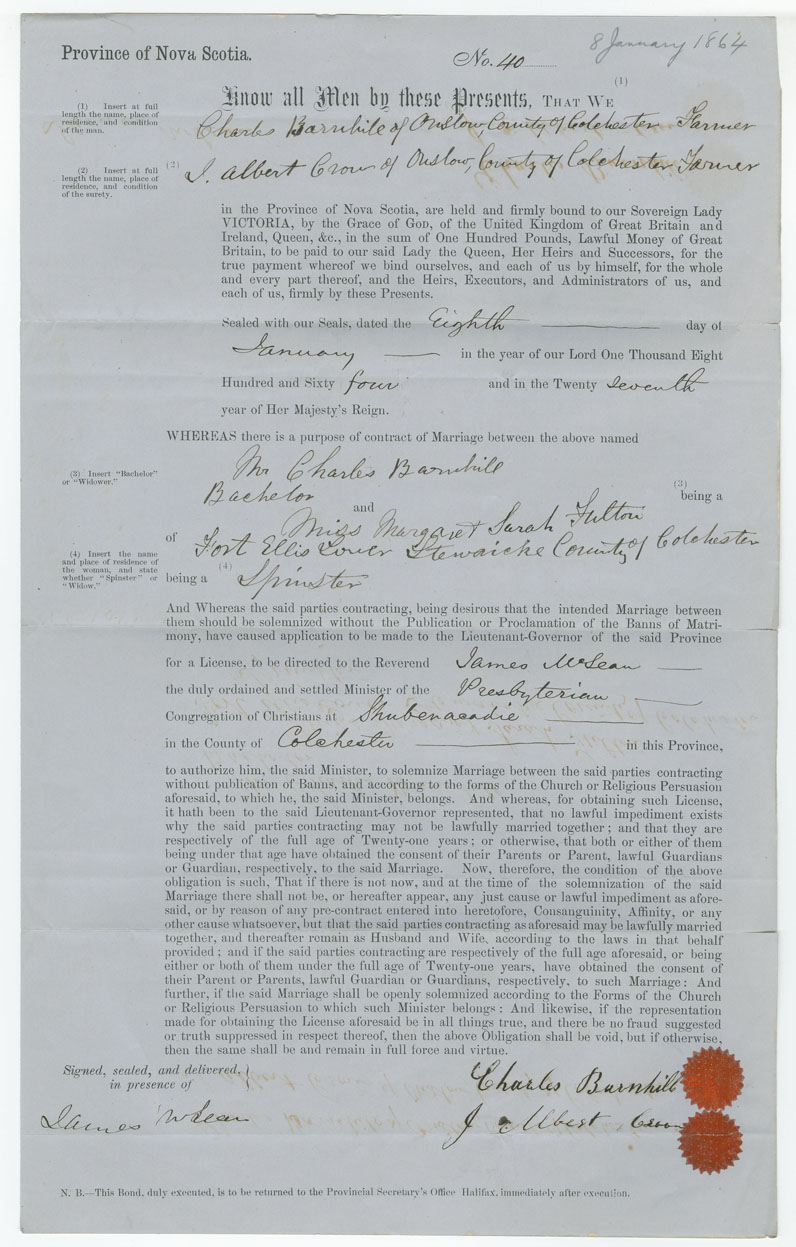 8 January 1864
Province of Nova Scotia.
No. 40
(1)
Know all Men by these Presents, THAT WE
(1) Insert at full length the name, place of residence, and condition of the man.
Charles Barnhile of Onslow, County of Colchester Farmer
(2) Insert at full length the name, place of residence, and condition of the surety.
(2) J. Albert Crow of Onslow, County of Colchester Farmer
in the Province of Nova Scotia, are held and firmly bound to our Sovereign Lady
VICTORIA, by the Grace of GOD, of the United Kingdom of Great Britain and
Ireland, Queen, &c., in the sum of One Hundred Pounds, Lawful Money of Great
Britain, to be paid to our said Lady the Queen, Her Heirs and Successors, for the
true payment whereof we bind ourselves, and each of us by himself, for the whole
and every part thereof, and the Heirs, Executors, and Administrators of us, and
each of us, firmly by these Presents.
Sealed with our Seals, dated the Eighth day of
January in the year of our Lord One Thousand Eight
Hundred and Sixty four and in the Twenty seventh
year of Her Majesty's Reign.
WHEREAS there is a purpose of contract of Marriage between the above named
Mr Charles Barnhill
(3) Insert "Bachelor" or "Widower."
(3)
Bachelor being a
and
Miss Margaret Sarah Fulton
of Fort Ellis Lower Stewaicke County of Colchester
(4) Insert the name and place of residence of the woman, and state whether "Spinster" or "Widow."
(4)
being a Spinster
And Whereas the said parties contracting, being desirous that the intended Marriage between
them should be solemnized without the Publication or Proclamation of the Banns of Matri-
mony, have caused application to be made to the Lieutenant-Governor of the said Province
for a License, to be directed to the Reverend James McLean
the duly ordained and settled Minister of the Presbyterian
Congregation of Christians at Shubenacadie
in the County of Colchester in this Province,
to authorize him, the said Minister, to solemnize Marriage between the said parties contracting
without publication of Banns, and according to the forms of the Church or Religious Persuasion
aforesaid, to which he, the said Minister, belongs. And whereas, for obtaining such License,
it hath been to the said Lieutenant-Governor represented, that no lawful impediment exists
why the said parties contracting may not be lawfully married together; and that they are
respectively of the full age of Twenty-one years; or otherwise, that both or either of them
being under that age have obtained the consent of their Parents or Parent, lawful Guardians
or Guardian, respectively, to the said Marriage. Now, therefore, the condition of the above
obligation is such, That if there is not now, and at the time of the solemnization of the said
Marriage there shall not be, or hereafter appear, any just cause or lawful impediment as afore-
said, or by reason of any pre-contract entered into heretofore, Consanguinity, Affinity, or any
other cause whatsoever, but that the said parties contracting as aforesaid may be lawfully married
together, and thereafter remain as Husband and Wife, according to the laws in that behalf
provided; and if the said parties contracting are respectively of the full age aforesaid, or being
either or both of them under the full age of Twenty-one years, have obtained the consent of
their Parent or Parents, lawful Guardian or Guardians, respectively, to such Marriage: And
further, if the said Marriage shall be openly solemnized according to the Forms of the Church
or Religious Persuasion to which such Minister belongs: And likewise, if the representation
made for obtaining the License aforesaid be in all things true, and there be no fraud suggested
or truth suppressed in respect thereof, then the above Obligation shall be void, but if otherwise,
then the same shall be and remain in full force and virtue.
Signed, sealed, and delivered,
in presence of
Charles Barnhill
James McLean
J Albert Crow
N. B.—This Bond, duly executed, is to be returned to the Provincial Secretary's Office Halifax, immediately after execution.